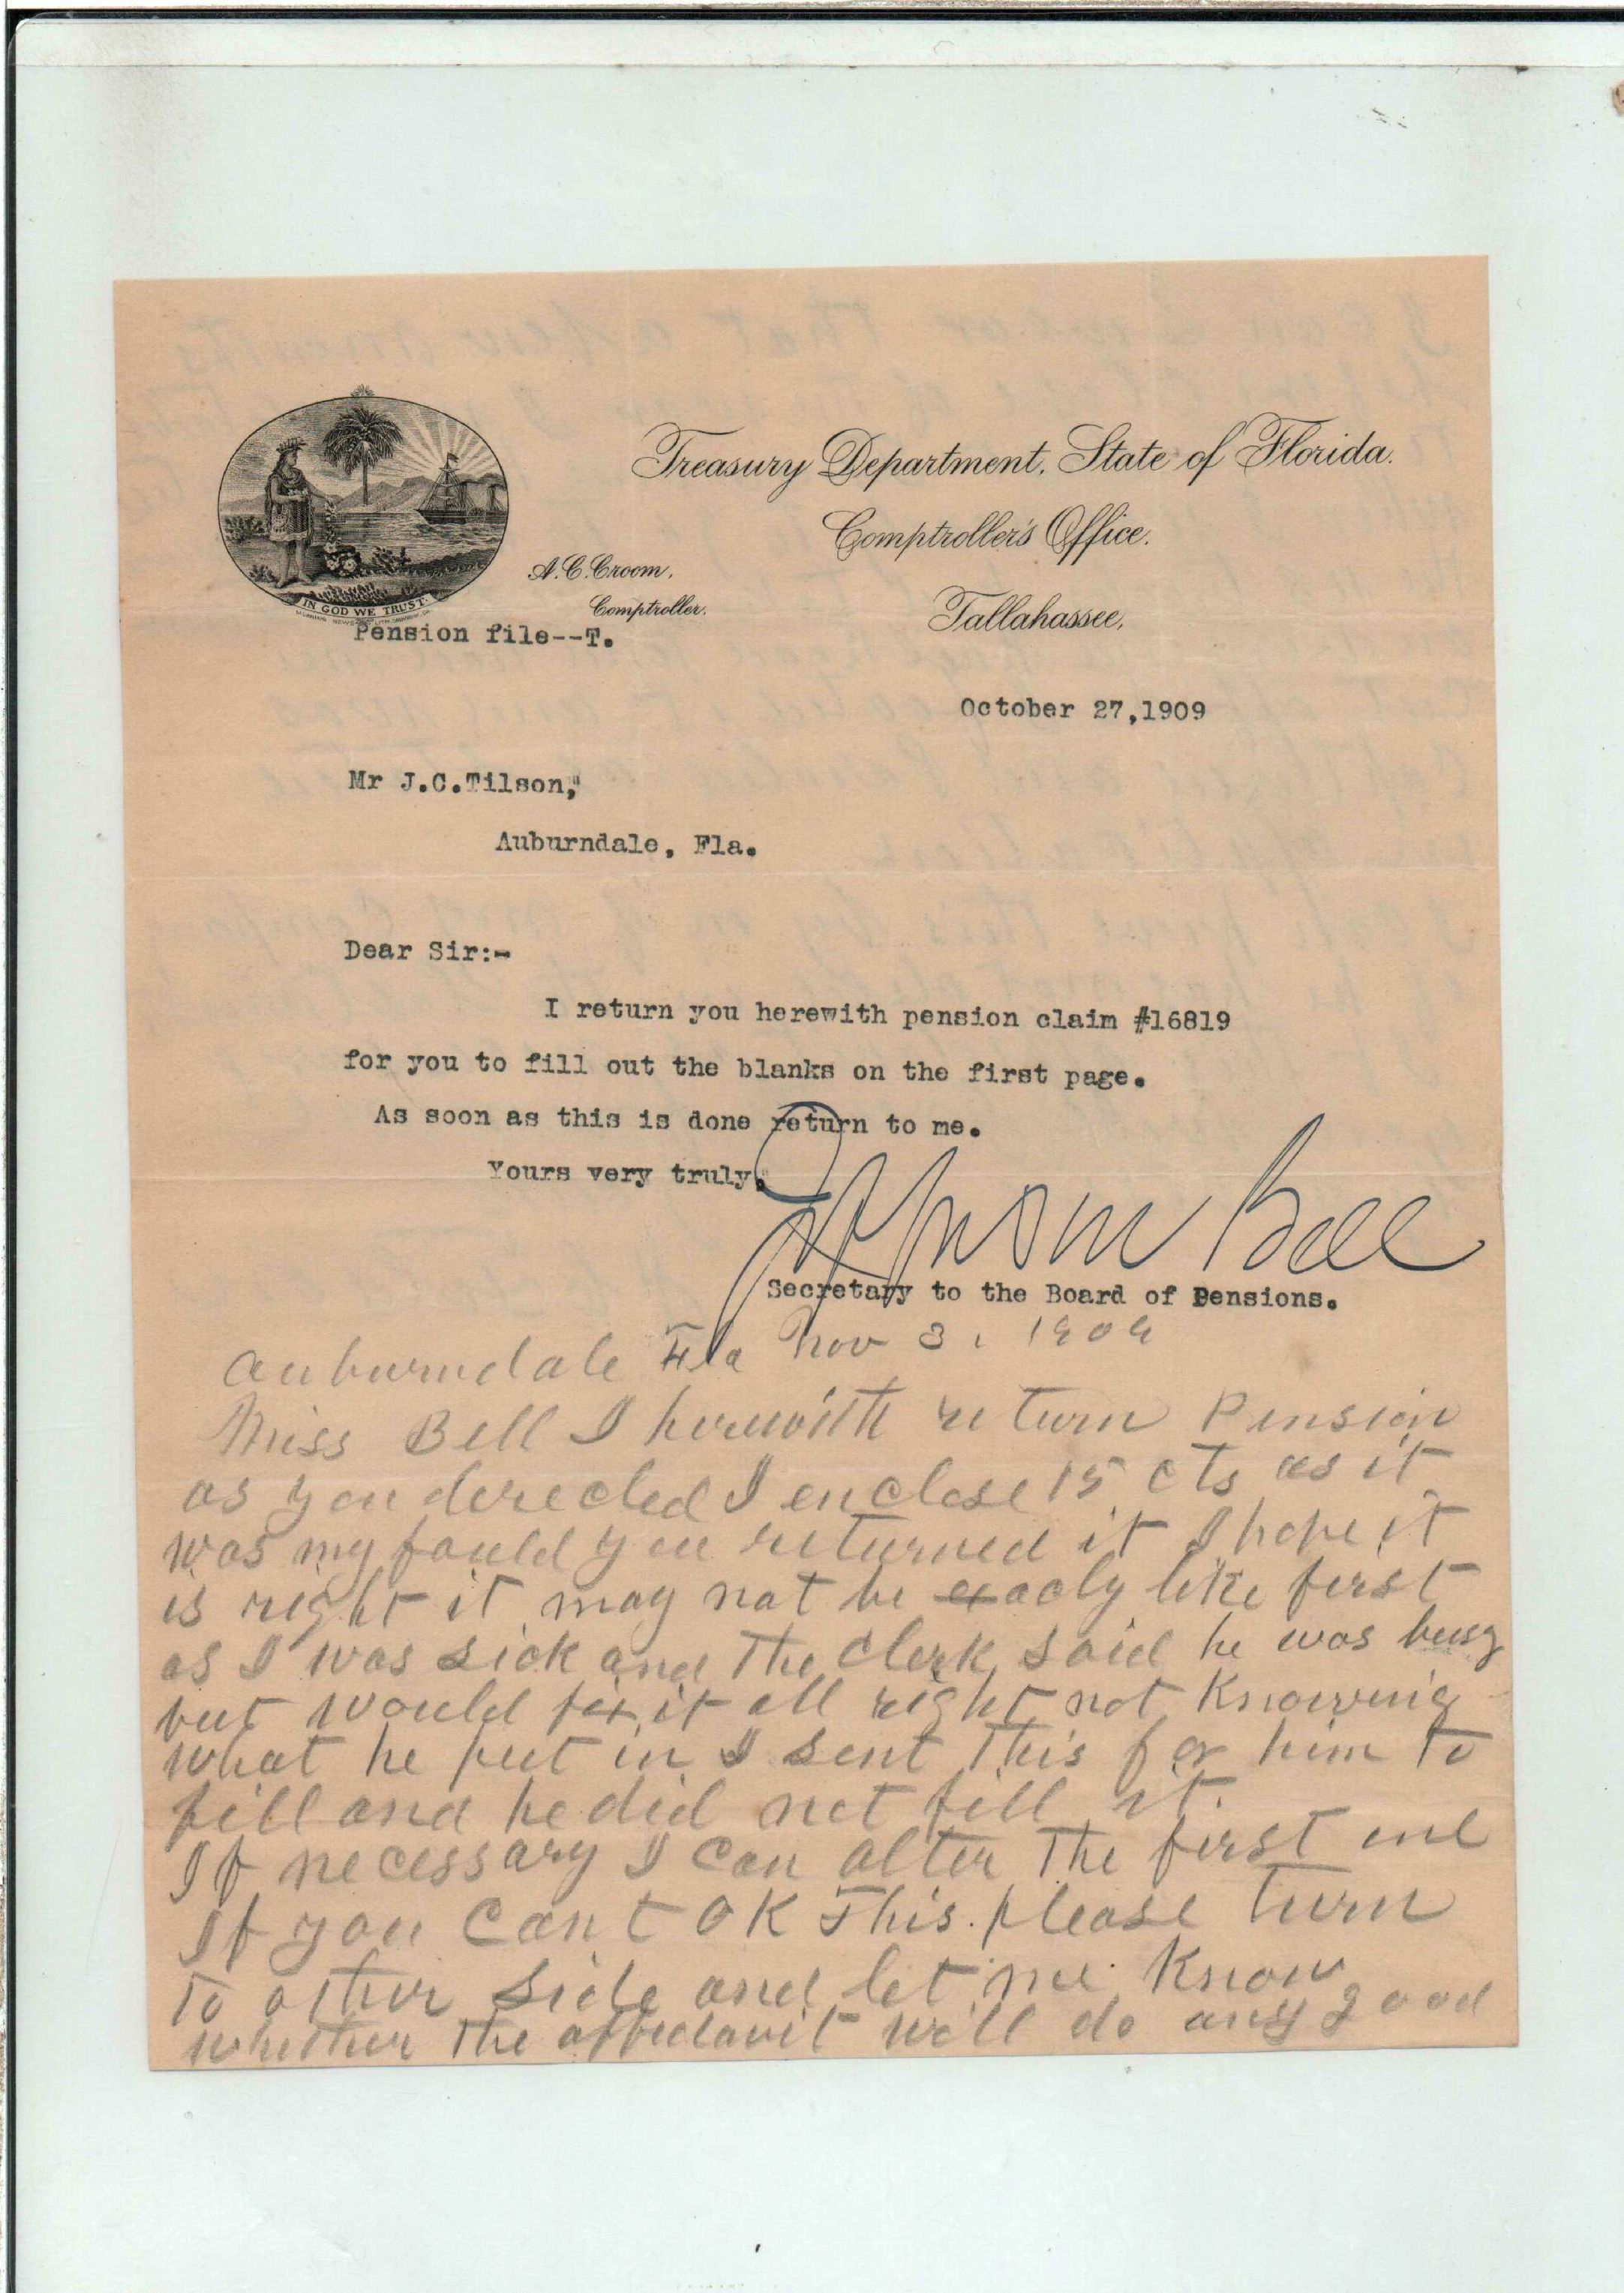 Treasury Department, State of Florida.
Comptroller's Office.
A.C. Croom,
Comptroller.
Tallahassee,
IN GOD WE TRUST
Pension file--T.
October 27,1909
Mr J.C.Tilson,"
Auburndale, Fla.
Dear Sir:-
I return you herewith pension claim #16819
for you to fill out the blanks on the first page.
As soon as this is done return to me.
Yours very truly,
Bell
Secretary to the Board of Pensions.
Auburndale Fla Nov 3, 1909
Miss Bell I herewith return Pension
as you derected I enclose 15 cts as it
was my fauld you returned it I hope it
is right it may not be exacly like first
as I was sick and the Clerk said he was busy
but would fix it all right not Knowing
what he put in I sent this for him to
fill and he did not fill it.
If necessary I can alter the first one
If you Cant OK This. please turn
to other side and let me Know
whether the affedavit will do any good